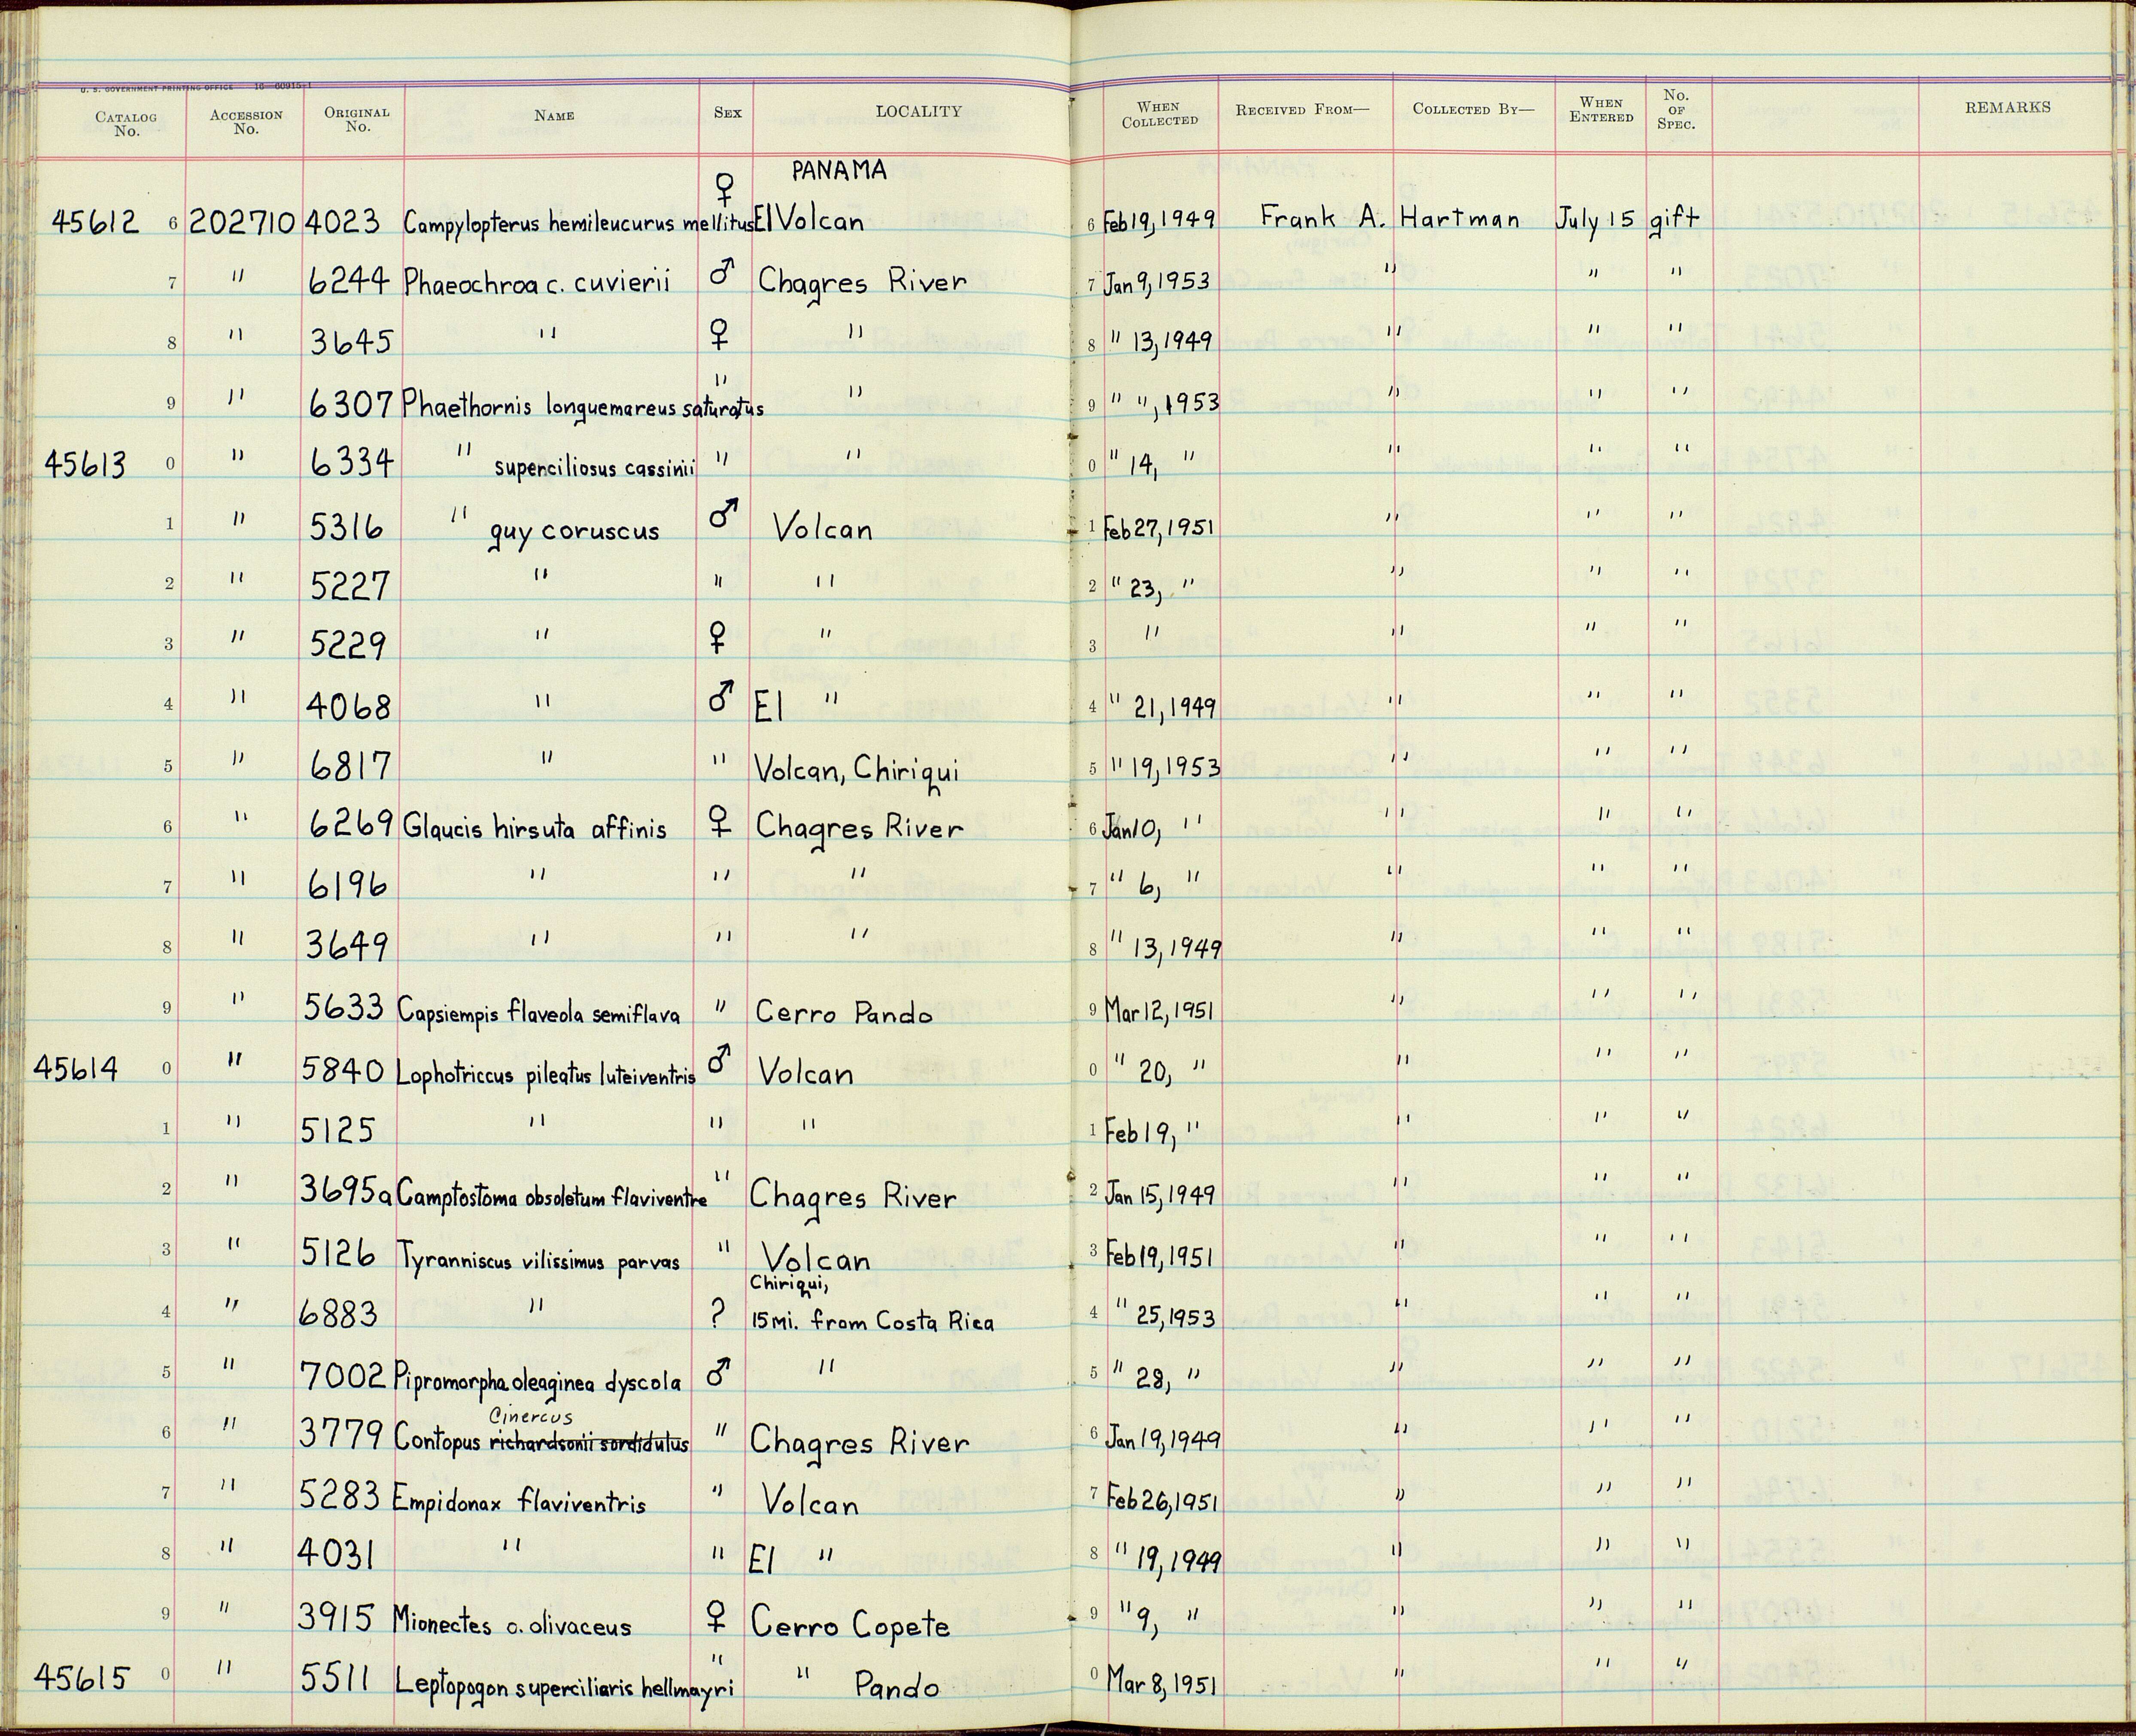 U. S. GOVERNMENT PRINTING OFFICE 16—60915-1
CATALOG No. ACCESSION No. ORIGINAL No. NAME SEX LOCALITY WHEN COLLECTED RECEIVED FROM— COLLECTED BY— WHEN ENTERED No. OF SPEC. REMARKS
PANAMA
45612 6 202710 4023 Campylopterus hemileucurus mellitus ♀ El Volcan 6 Feb 19, 1949 Frank A. Hartman July 15 gift
7 " 6244 Phaeochroa c. cuvierii ♂ Chagres River 7 Jan 9, 1953 " " "
8 " 3645 " ♀ " 8 " 13, 1949 " " "
9 " 6307 Phaethornis longuemareus saturatus " " 9 " ", 1953 " " "
45613 0 " 6334 " superciliosus cassinii " " 0 " 14, " " " "
1 " 5316 " guy coruscus ♂ Volcan 1 Feb 27, 1951 " " "
2 " 5227 " " " 2 " 23, " " " "
3 " 5229 " ♀ " 3 " " " "
4 " 4068 " ♂ El " 4 " 21, 1949 " " "
5 " 6817 " " Volcan, Chiriqui 5 " 19, 1953 " " "
6 " 6269 Glaucis hirsuta affinis ♀ Chagres River 6 Jan 10, " " " "
7 " 6196 " " " 7 " 6, " " " "
8 " 3649 " " " 8 " 13, 1949 " " "
9 " 5633 Capsiempis flaveola semiflava " Cerro Pando 9 Mar 12, 1951 " " "
45614 0 " 5840 Lophotriccus pileatus luteiventris ♂ Volcan 0 " 20, " " " "
1 " 5125 " " " 1 Feb 19, " " " "
2 " 3695a Camptostoma obsoletum flaviventre " Chagres River 2 Jan 15, 1949 " " "
3 " 5126 Tyranniscus vilissimus parvas " Volcan 3 Feb 19, 1951 " " "
Chiriqui,
4 " 6883 " ? 15 mi. from Costa Rica 4 " 25, 1953 " " "
5 " 7002 Pipromorpha oleaginea dyscola ♂ " 5 " 28, " " " "
Cinercus
6 " 3779 Contopus richardsonii sordidulus " Chagres River 6 Jan 19, 1949 " " "
7 " 5283 Empidonax flaviventris " Volcan 7 Feb 26, 1951 " " "
8 " 4031 " " El " 8 " 19, 1949 " " "
9 " 3915 Mionectes o. olivaceus ♀ Cerro Copete 9 " 9, " " " "
45615 0 " 5511 Leptopogon superciliaris hellmayri " " Pando 0 Mar 8, 1951 " " "